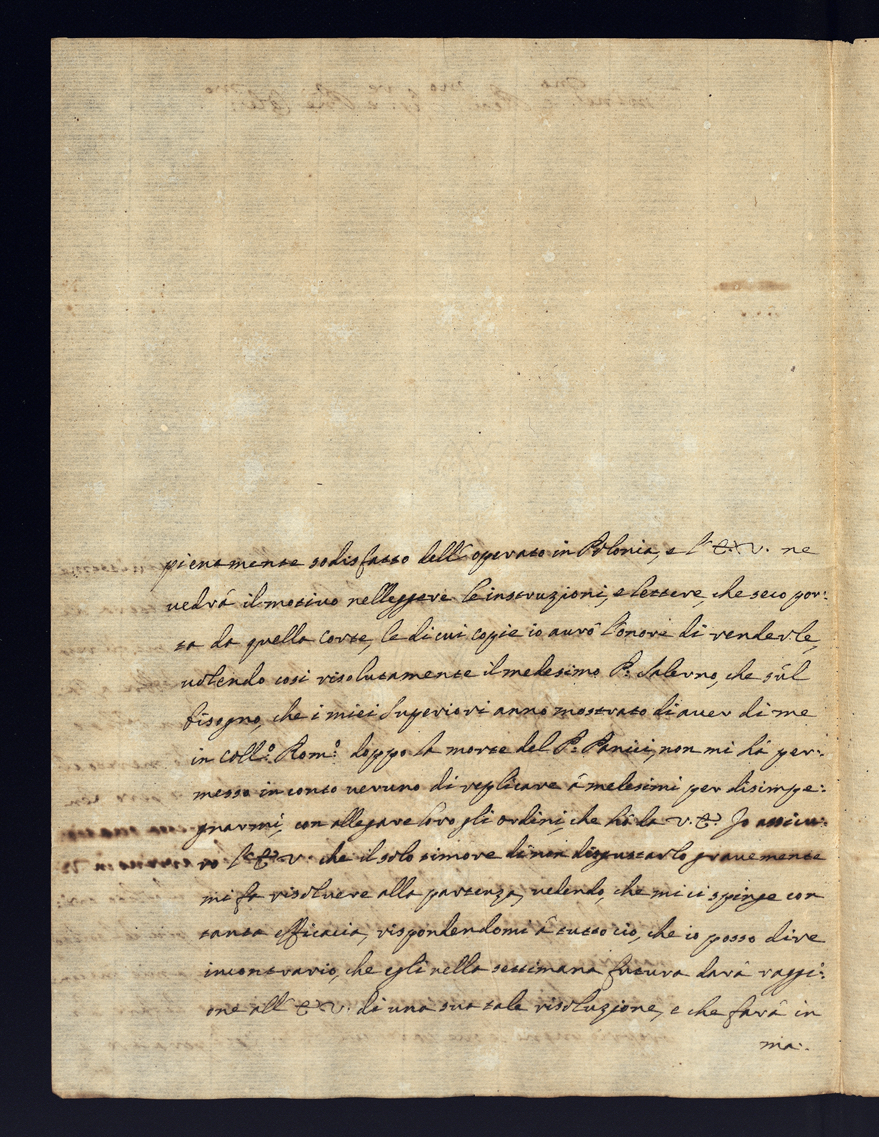 pienamente sodisfatto dell'operato in Polonia, e l'E. V. ne
vedrà il motivo nelleggere le instruzioni, e lettere, che seco por:
ta da quella Corte, le di cui copie io aurò l'onore di renderle,
volendo così risolutamente il medesimo P. Salerno, che sùl
bisogno, che i miei Superiori anno mostrato di aver di me
in Coll.º Rom.º doppo la morte del P. Panici, non mi hà per:
messo in conto veruno di replicare à medesimi per disimpe:
gnarmi, con allegare loro gli ordini, che hò da V. E. Io assicu:
ro l'E. V. che il solo timore di non disgustarlo gravemente
mi fà risolvere alla partenza, vedendo, che mi ci spinge con
tanta efficacia, rispondendomi à tutto ciò, che io posso dire
in contrario, che egli nella settimana futura darà raggi:
one all'E. V. di una sua tale risoluzione, e che farà in
ma: